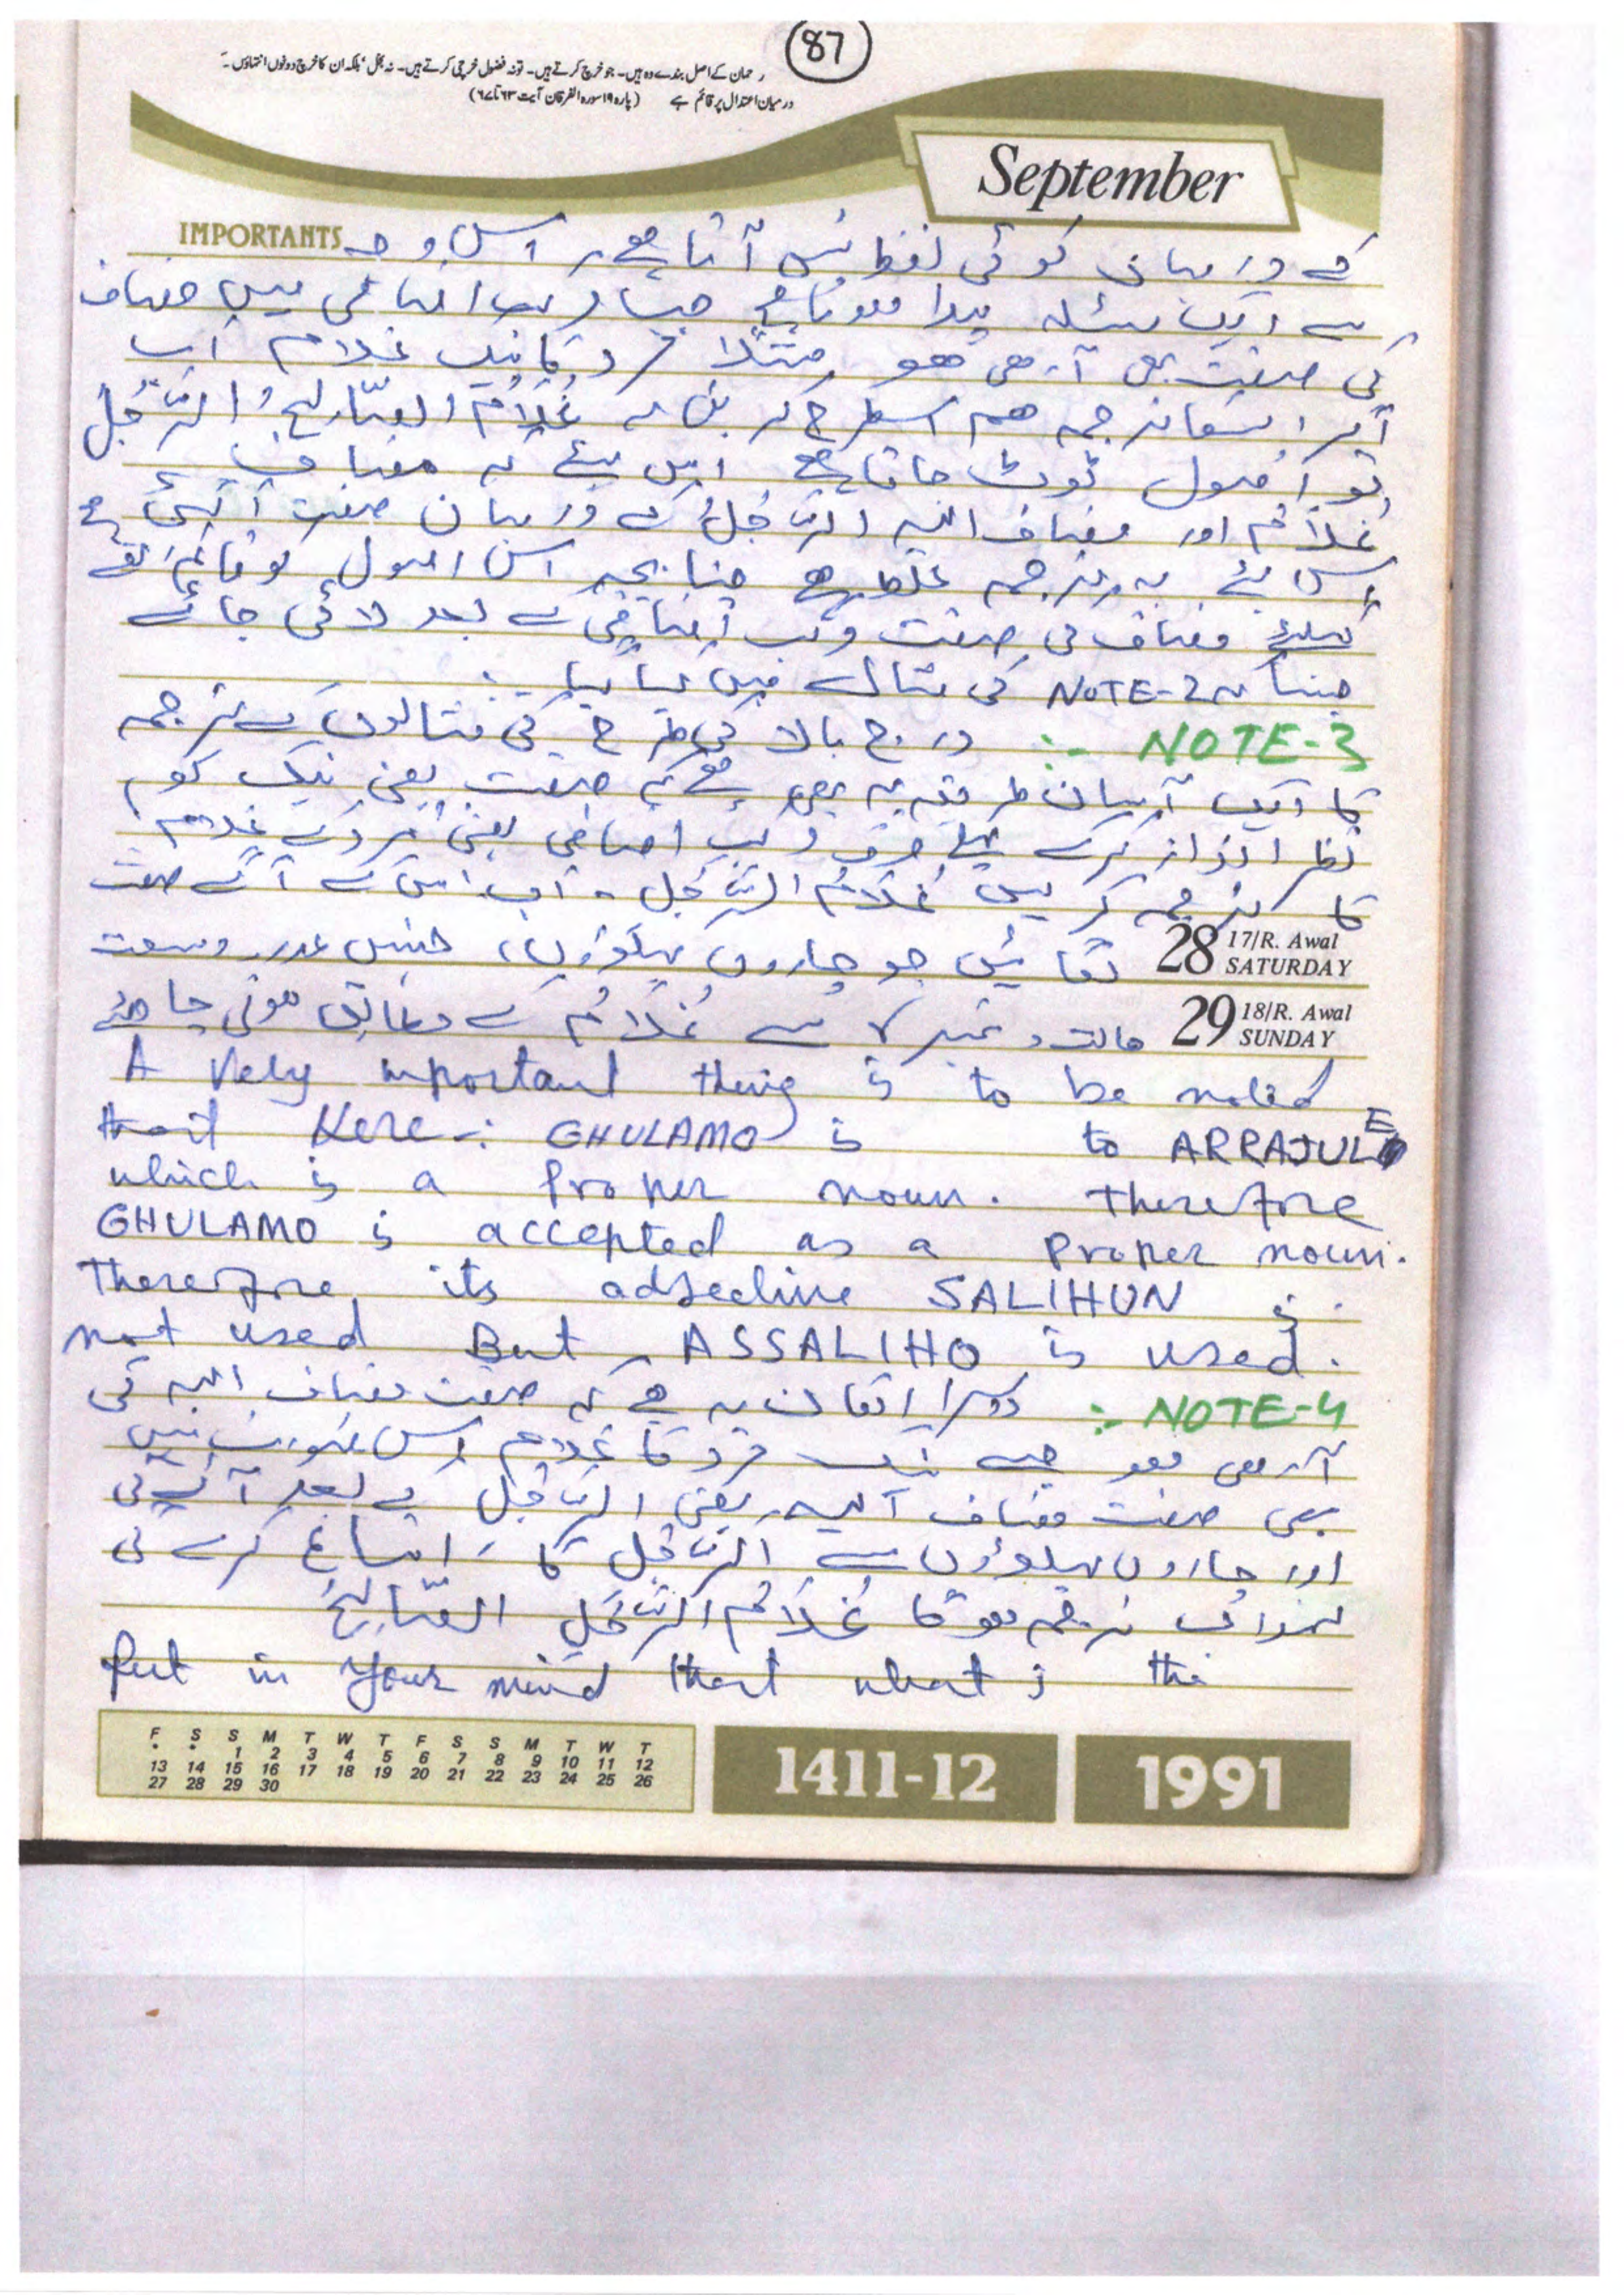 87
رحمان کے اصل بندے وہ ہیں۔ جو خرچ کرتے ہیں۔ تو نہ فضول خرچی کرتے ہیں۔ نہ بخل، بلکہ ان کا خرچ دونوں انتہاؤں کے
درمیان اعتدال پر قائم ہے (پارہ ۱۹ سورہ الفرقان آیت ۶۳ تا ۶۷)
September
IMPORTANTS
کے درمیان کوئی لفظ نہیں آتا ہے، اس وجہ
سے ایک مسئلہ پیدا ہوتا ہے جب مرکب اضافی میں مضاف
کی صفت بھی آرہی ہو مثلاً مرد کا نیک غلام اب
اگر اسکا ترجمہ ہم اسطرح کریں کہ غُلَامُ الصَّالِحُ الرَّجُلِ
تو اصول ٹوٹ جاتا ہے اس لیئے کہ مضاف
غلامُ اور مضاف الیہ الرَّجُلِ کے درمیان صفت آگئی ہے
اس لئے یہ ترجمہ غلط ہے چنانچہ اس اصول کو قائم رکھنے
کیلئے مضاف کی صفت مرکب اضافی کے بعد لائی جائے
جیسا کہ NOTE-2 کی مثال میں کیا گیا :-
NOTE-3 :- درج بالا کی طرح کی مثالوں کے ترجمہ
کا ایک آسان طریقہ یہ بھی ہے کہ صفت یعنی نیک کو
نظر انداز کرکے پہلے صرف مرکب اضافی یعنی مرد کے غلام
کا ترجمہ کرلیں غُلَامُ الرَّجُلِ ۔ اب اس کے آگے صفت
28 17/R. Awal SATURDAY لگائیں جو چاروں پہلوؤں، جنس عدد وسعت
29 18/R. Awal SUNDAY حالت، سے غُلَامُ کے مطابق ہونی چاہئے
A Very important thing is to be noted
that Here :- GHULAMO is to ARRAJULE
which is a Proper noun. Therefore
GHULAMO is accepted as a Proper noun.
Therefore, its adjective SALIHUN is
not used But, ASSALIHO is used.
NOTE-4 :- دوسرا امکان یہ ہے کہ صفت مضاف الیہ کی
آرہی ہو جیسے نیک مرد کا غلام اس صورت میں
بھی صفت مضاف الیہ یعنی الرَّجُلِ کے بعد آئے گی
اور چاروں پہلوؤں سے الرَّجُلِ کا اتباع کرے گی
لہذا اب ترجمہ ہوگا غُلَامُ الرَّجُلِ الصَّالِحِ
Put in your mind that what is the
F S S M T W T F S S M T W T
• • 1 2 3 4 5 6 7 8 9 10 11 12
13 14 15 16 17 18 19 20 21 22 23 24 25 26
27 28 29 30
1411-12
1991